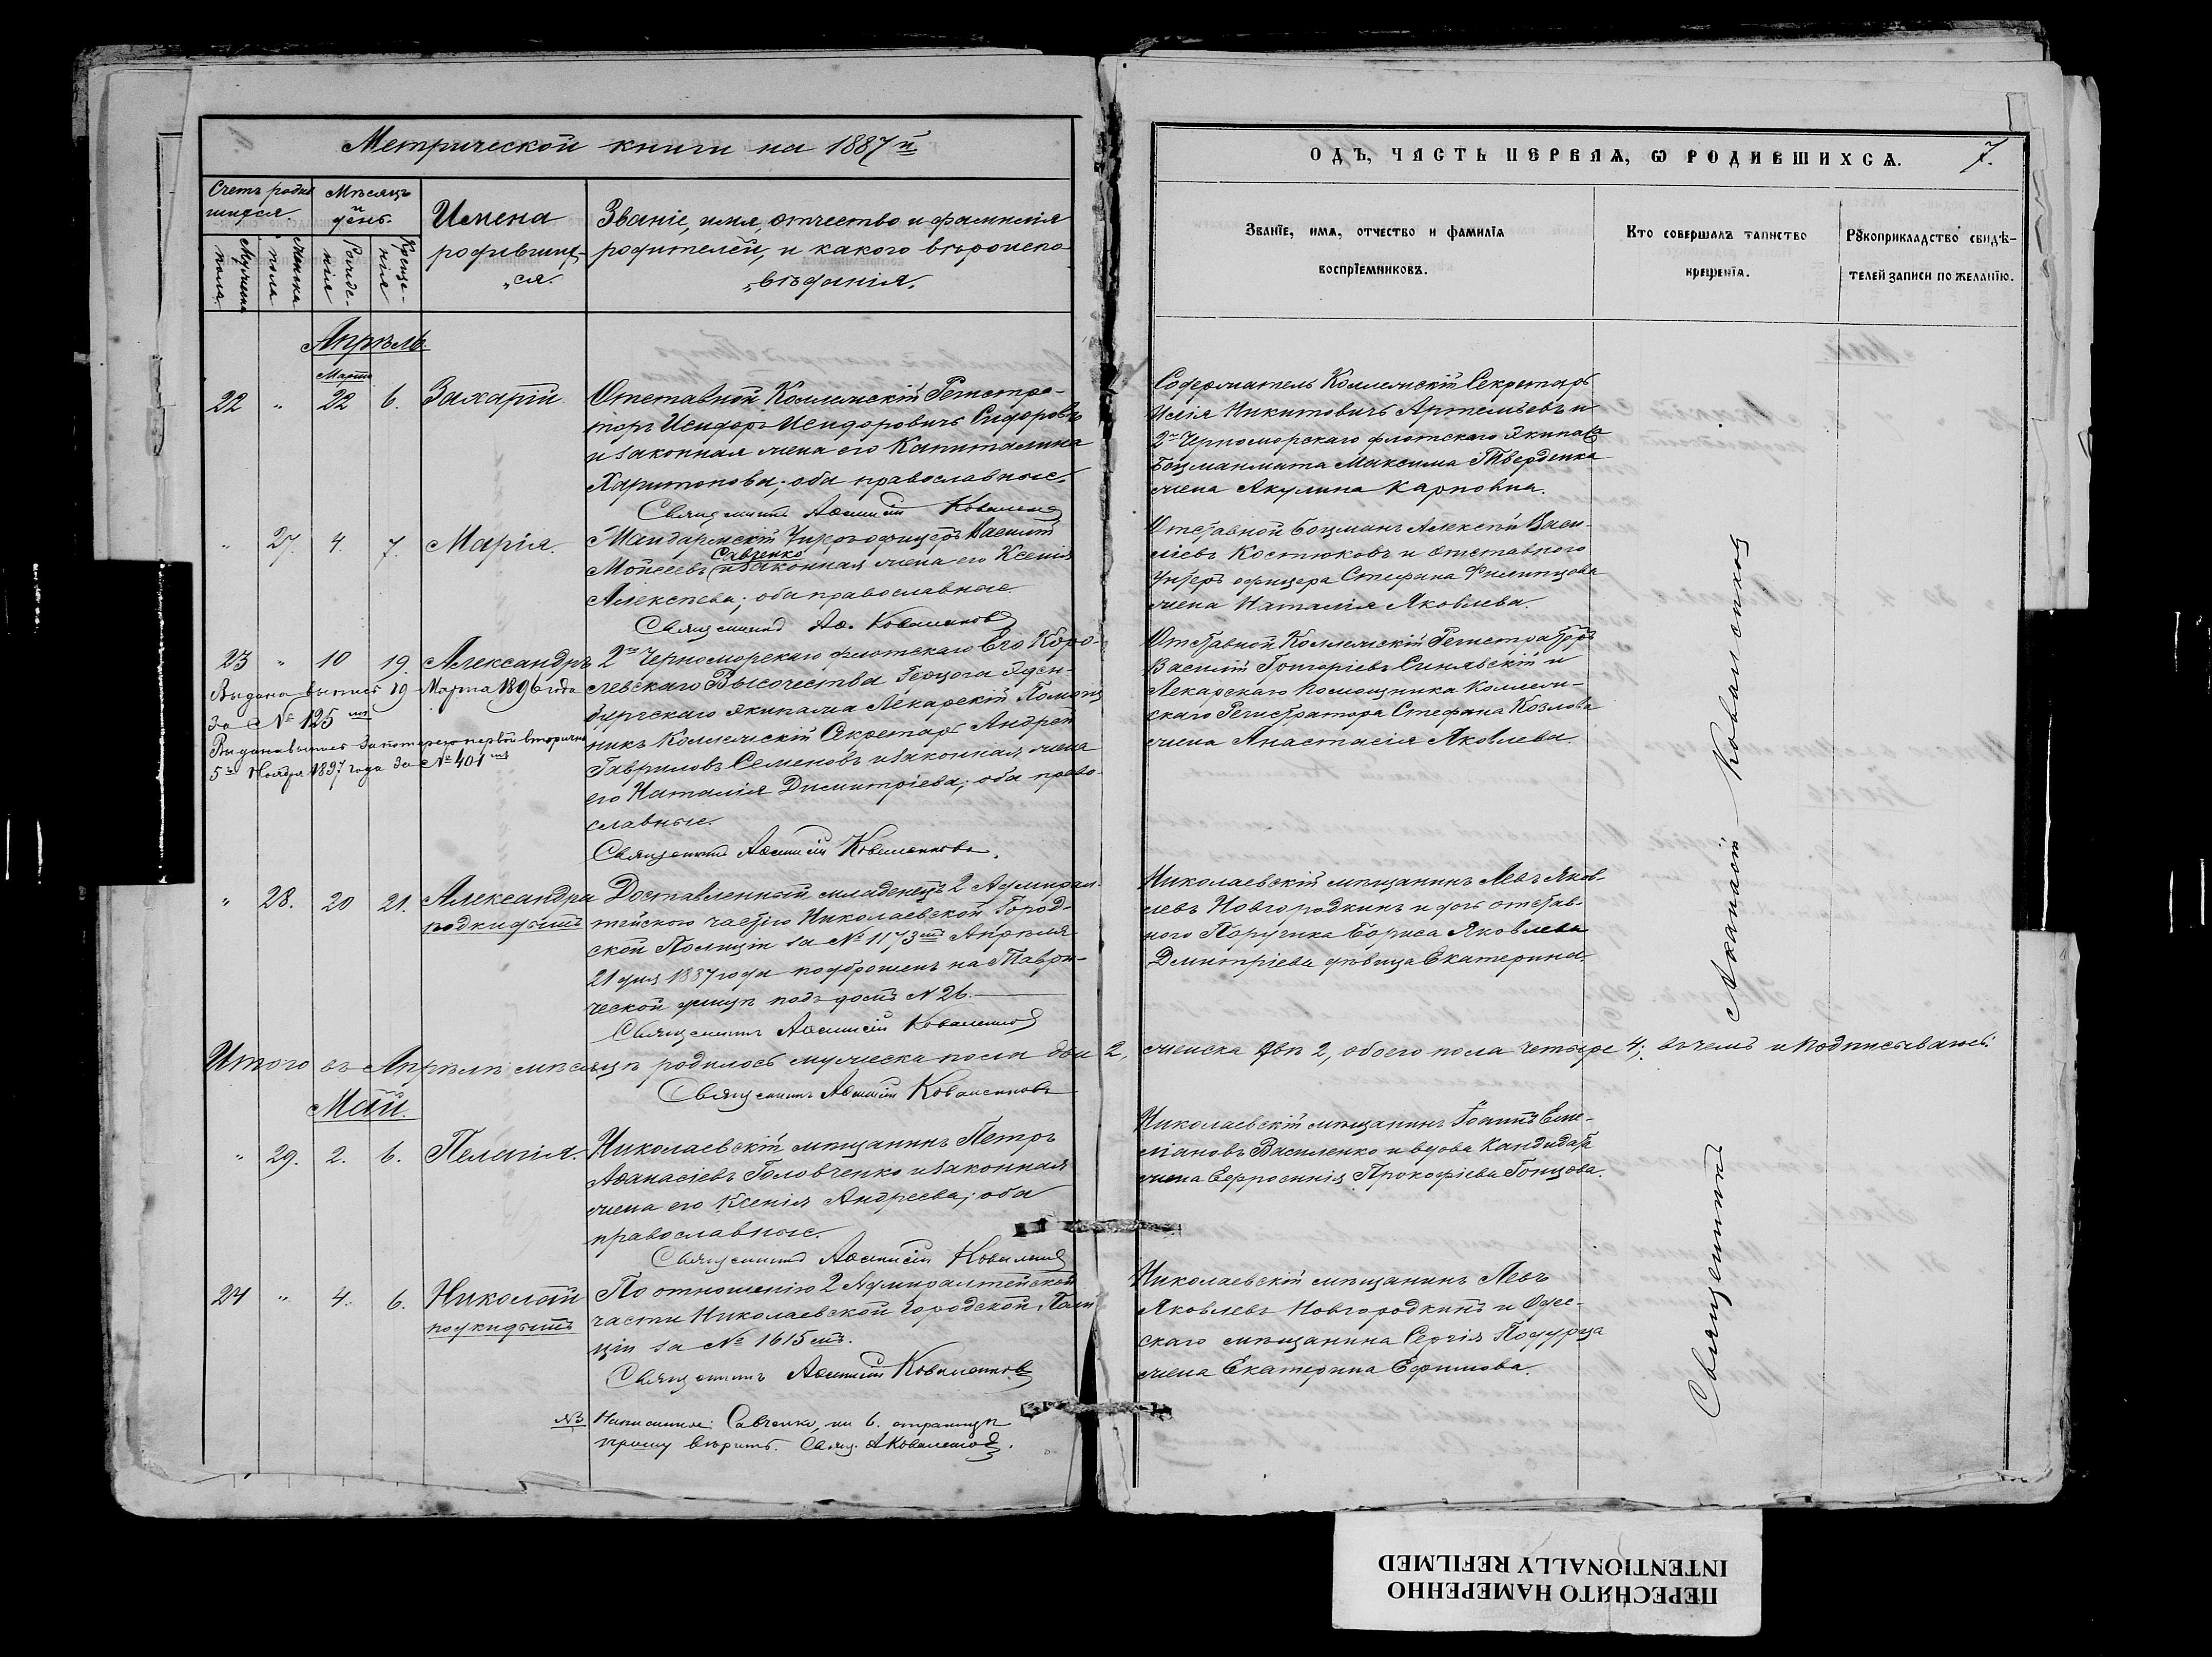 Метрической книги на 1887й
Счетъ родив
шихся.
Мѣсяцъ
и
день.
Имена
родивших-
„ся.
Званіе, имя, отчество и фамилія
родителей, и какого вѣроиспо-
„вѣданія.
Мужеска
пола.
Женска
пола
Рожде-
нія
Креще-
нія
Апрѣль.
Марта
22 „ 22 6. Захарій
Отставной Коллежскій Регистра-
торъ Исидоръ Исидоровичъ Сидоровъ
и законная жена его Капитолина
Харитонова; оба православные.
Священникъ Аѳанасій Коваленковъ
„ 27. 4. 7. Марія.
Жандармскій Унтеръ-офицеръ Василій
Савченко
Моисеевъ и законная жена его Ксенія
Алексѣева; оба православные.
Священникъ Аѳ. Коваленковъ
23 „ 10 19. Александръ
2го Черноморскаго флотскаго Его Коро-
левскаго Высочества Герцога Эдин-
бургскаго экипажа Лекарскій Помощ
никъ Коллежскій Секретарь Андрей
Гавриловъ Семеновъ и законная жена
его Наталія Димитріева; оба право-
славные.
Священникъ Аѳанасій Коваленковъ.
Выдана выпись 19 Марта 1896 года
за № 125мъ
Выдана выпись за потерею первой вторично
5го Ноября 1897 года за № 401мъ
„ 28. 20 21. Александра
подкидышъ
Доставленный младенецъ 2 Адмирал-
тейскою частію Николаевской Город-
ской Полиціи за № 1173мъ Апрѣля
21 дня 1887 года подброшенъ на Таври-
ческой улицѣ подъ домъ № 26.
Священникъ Аѳанасій Коваленковъ
Итого въ Апрѣлѣ мѣсяцѣ родилось мужеска пола два 2, женска двѣ 2, обоего пола четыре 4; въ чемъ и подписываюсь:
Священникъ Аѳанасій Коваленковъ
Май.
„ 29. 2. 6. Пелагія.
Николаевскій мѣщанинъ Петръ
Аѳанасіевъ Головченко и законная
жена его Ксенія Андреева; оба
православные.
Священникъ Аѳанасій Коваленковъ
24 „ 4. 6. Николай
подкидышъ
По отношенію 2 Адмиралтейской
части Николаевской Городской Поли
ціи за № 1615мъ.
Священникъ Аѳанасій Коваленковъ
NB Написанное: Савченко, на 6. страницѣ
прошу вѣрить. Свящ. А Коваленковъ.
ОДЪ, ЧАСТЬ ПЕРВАЯ, Ѡ РОДИВШИХСѦ.
7.
Званїе, имѧ, отчество и фамилїа
воспрїемниковъ.
Кто совершалъ таинство
крещенїа.
Рꙋкоприкладство свидѣ-
телей записи по желанїю.
Содержатель Коллежскій Секретарь
Илія Никитовичъ Артемьевъ и
2го Черноморскаго флотскаго Экипажа
Боцманмата Максима Тверденка
жена Акулина Карповна.
Отставной Боцманъ Алексѣй Васи-
ліевъ Костюковъ и отставного
Унтеръ офицера Стефана Филипцова
жена Наталія Яковлева.
Отставной Коллежскій Регистраторъ
Василій Григоріевъ Синявскій и
Лекарскаго помощника Коллеж-
скаго Регистратора Стефана Козлова
жена Анастасія Яковлева.
Николаевскій мѣщанинъ Левъ Яков-
левъ Новгородкинъ и дочь отстав-
ного Поручика Бориса Яковлева
Дмитріева дѣвица Екатерина.
Николаевскій мѣщанинъ Іоаннъ Еме-
ліановъ Василенко и вдова Кандидата
жена Евфросинія Прокофіева Гонцова.
Николаевскій мѣщанинъ Левъ
Яковлевъ Новгородкинъ и Одес-
скаго мѣщанина Сергія Подурца
жена Екатерина Ефимова.
Священникъ Аѳанасій Коваленковъ
ПЕРЕСНЯТО НАМЕРЕННО
INTENTIONALLY REFILMED